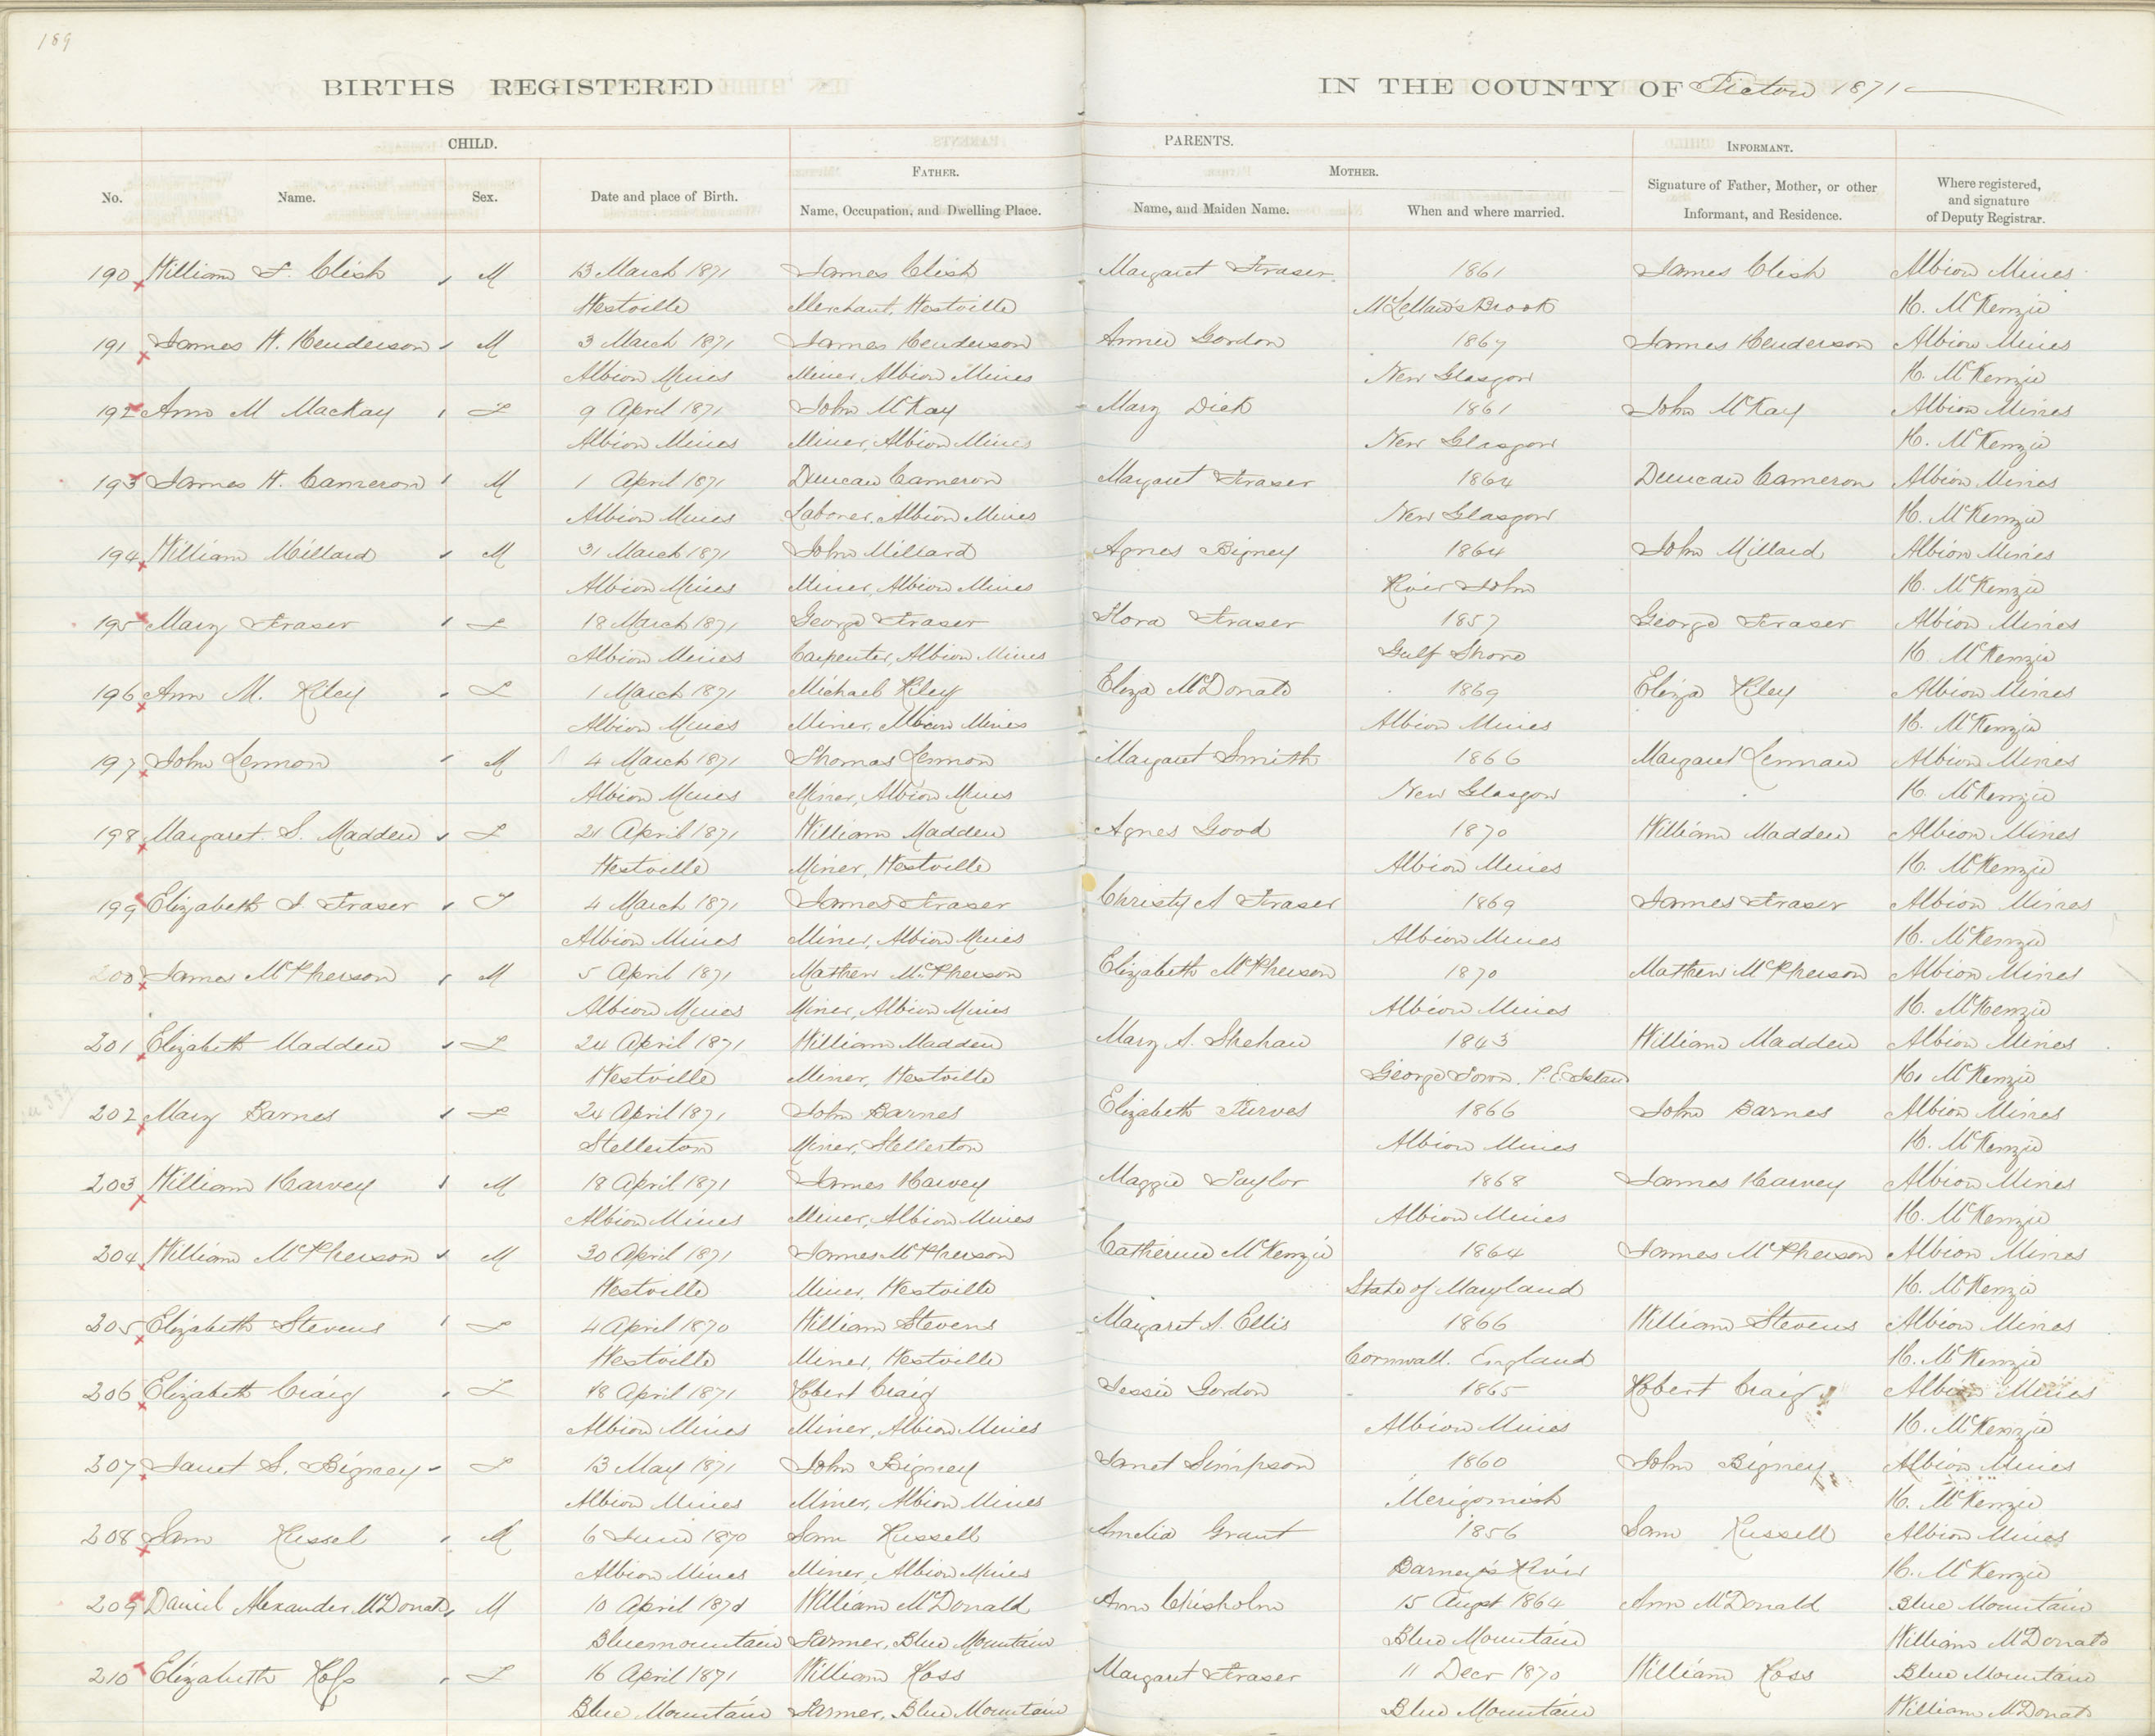 189
BIRTHS REGISTERED IN THE COUNTY OF Pictou 1871
CHILD. PARENTS. INFORMANT.
FATHER. MOTHER.
No. Name. Sex. Date and place of Birth. Name, Occupation, and Dwelling Place. Name, and Maiden Name. When and where married. Signature of Father, Mother, or other Informant, and Residence. Where registered, and signature of Deputy Registrar.
190 William F. Clish M 13 March 1871 James Clish Margaret Fraser 1861 James Clish Albion Mines
Westville Merchant, Westville McLellan's Brook H. McKenzie
191 James H. Henderson M 3 March 1871 James Henderson Annie Gordon 1867 James Henderson Albion Mines
Albion Mines Miner, Albion Mines New Glasgow H. McKenzie
192 Ann M MacKay F 9 April 1871 John McKay Mary Dick 1861 John McKay Albion Mines
Albion Mines Miner, Albion Mines New Glasgow H. McKenzie
193 James H. Cameron M 1 April 1871 Duncan Cameron Margaret Fraser 1864 Duncan Cameron Albion Mines
Albion Mines Laborer, Albion Mines New Glasgow H. McKenzie
194 William Millard M 31 March 1871 John Millard Agnes Bigney 1864 John Millard Albion Mines
Albion Mines Miner, Albion Mines River John H. McKenzie
195 Mary Fraser F 18 March 1871 George Fraser Flora Fraser 1857 George Fraser Albion Mines
Albion Mines Carpenter, Albion Mines Gulf Shore H. McKenzie
196 Ann M. Riley F 1 March 1871 Michael Riley Eliza McDonald 1869 Eliza Riley Albion Mines
Albion Mines Miner, Albion Mines Albion Mines H. McKenzie
197 John Lennon M 4 March 1871 Thomas Lennon Margaret Smith 1866 Margaret Lennan Albion Mines
Albion Mines Miner, Albion Mines New Glasgow H. McKenzie
198 Margaret S. Madden F 21 April 1871 William Madden Agnes Good 1870 William Madden Albion Mines
Westville Miner, Westville Albion Mines H. McKenzie
199 Elizabeth J. Fraser F 4 March 1871 James Fraser Christy A Fraser 1869 James Fraser Albion Mines
Albion Mines Miner, Albion Mines Albion Mines H. McKenzie
200 James McPherson M 5 April 1871 Mathew McPherson Elizabeth McPherson 1870 Mathew McPherson Albion Mines
Albion Mines Miner, Albion Mines Albion Mines H. McKenzie
201 Elizabeth Madden F 24 April 1871 William Madden Mary A. Shehan 1843 William Madden Albion Mines
Westville Miner, Westville George Town, P.E. Island H. McKenzie
202 Mary Barnes F 24 April 1871 John Barnes Elizabeth Turves 1866 John Barnes Albion Mines
Stellerton Miner, Stellerton Albion Mines H. McKenzie
203 William Harvey M 18 April 1871 James Harvey Maggie Taylor 1868 James Harvey Albion Mines
Albion Mines Miner, Albion Mines Albion Mines H. McKenzie
204 William McPherson M 20 April 1871 James McPherson Catherine McKenzie 1864 James McPherson Albion Mines
Westville Miner, Westville State of Maryland H. McKenzie
205 Elizabeth Stevens F 4 April 1870 William Stevens Margaret A. Ellis 1866 William Stevens Albion Mines
Westville Miner, Westville Cornwall. England H. McKenzie
206 Elizabeth Craig F 18 April 1871 Robert Craig Jessie Gordon 1865 Robert Craig Albion Mines
Albion Mines Miner, Albion Mines Albion Mines H. McKenzie
207 Janet S. Bigney F 13 May 1871 John Bigney Janet Simpson 1860 John Bigney Albion Mines
Albion Mines Miner, Albion Mines Merigomish H. McKenzie
208 Sam Russel M 6 June 1870 Sam Russell Amelia Grant 1856 Sam Russell Albion Mines
Albion Mines Miner, Albion Mines Barney's River H. McKenzie
209 Daniel Alexander McDonald M 10 April 1871 William McDonald Ann Chisholm 15 Augst 1864 Ann McDonald Blue Mountain
Bluemountain Farmer, Blue Mountain Blue Mountain William McDonald
210 Elizabeth Ross F 16 April 1871 William Ross Margaret Fraser 11 Decr 1870 William Ross Blue Mountain
Blue Mountain Farmer, Blue Mountain Blue Mountain William McDonald